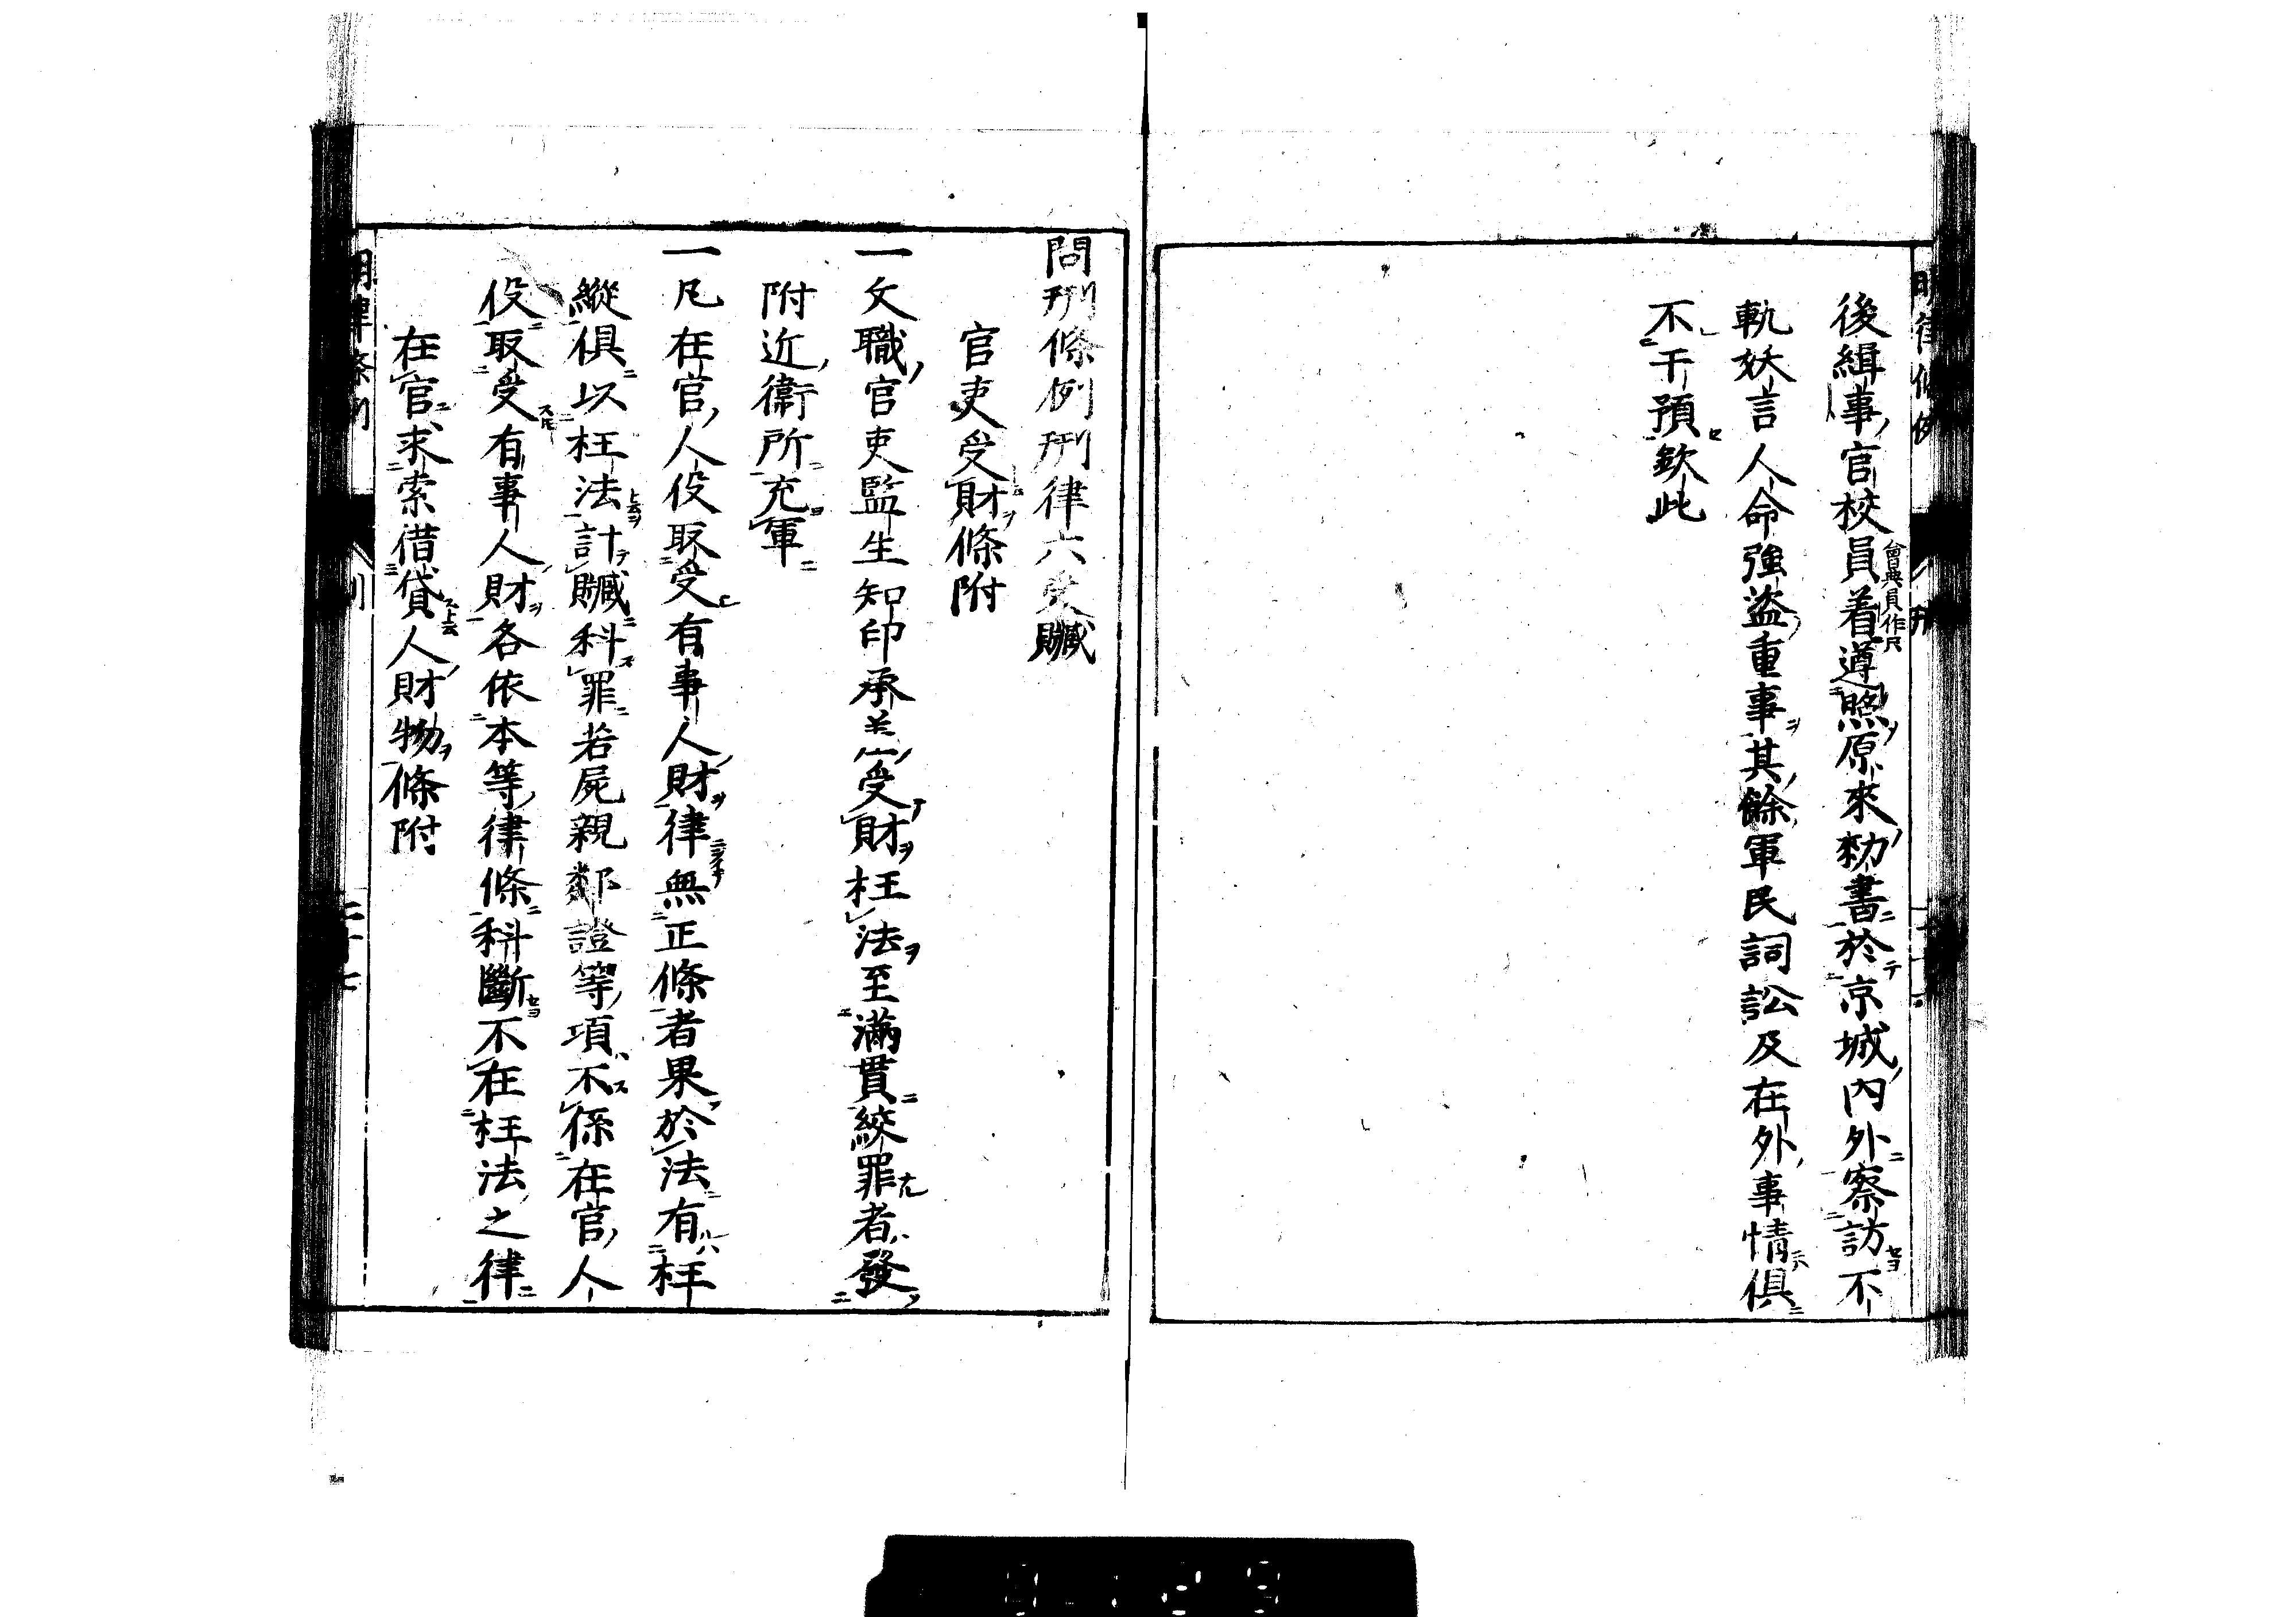 後緝事官校員着遵照原來勑書於京城內外察訪不
會典員作只
軌妖言人命強盜重事其餘軍民詞訟及在外事情俱
不干預欽此
問刑條例刑律六受贓
官吏受財條附
一文職官吏監生知印承差受財枉法至滿貫絞罪者發
附近衛所充軍
一凡在官人役取受有事人財律無正條者果於法有枉
縱俱以枉法計贓科罪若屍親鄰證等項不係在官人
役取受有事人財各依本等律條科斷不在枉法之律
在官求索借貸人財物條附